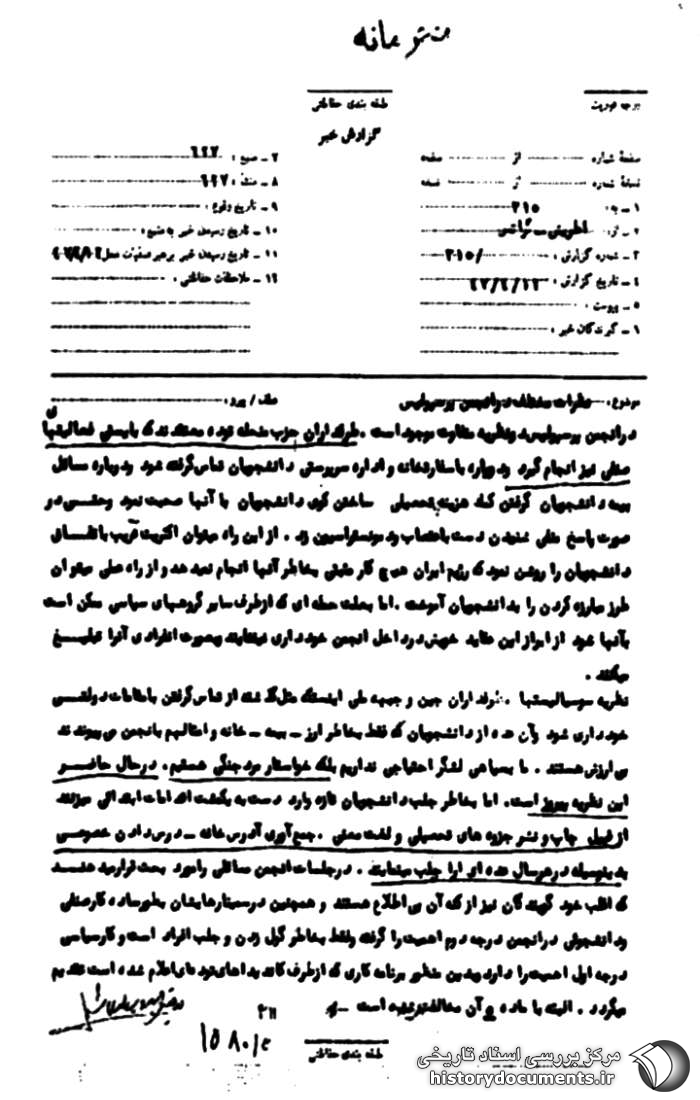 طبقه بندی حفاظتی
گزارش خبر
درجه فوریت
صفحهٔ شماره از صفحه
نسخهٔ شماره از نسخه
۱ ـ به: ۳۱۵
۲ ـ از:
۳ ـ شماره گزارش: ۳۱۵/
۴ ـ تاریخ گزارش:
۵ ـ پیوست:
۶ ـ گیرندگان خبر:
۷ ـ منبع:
۸ ـ منشاء:
۹ ـ تاریخ وقوع:
۱۰ ـ تاریخ رسیدن خبر به منبع:
۱۱ ـ تاریخ رسیدن خبر برهبر عملیات محل
۱۲ ـ ملاحظات حفاظتی:
موضوع: نظرات مختلف در انجمن پرسپولیس
عطف / پیرو:
در انجمن پرسپولیس دو نظریه متفاوت موجود است . طرفداران حزب منحله توده معتقدند که بایستی فعالیتهای
صنفی نیز انجام گیرد و دوباره با سفارتخانه و اداره سرپرستی دانشجویان تماس گرفته شود و درباره مسائل
بیمه دانشجویان گرفتن کمک هزینه تحصیلی ساختن کوی دانشجویان با آنها صحبت نمود و حتی در
صورت پاسخ منفی شنیدن دست باعتصاب و دمونستراسیون زد . از این راه میتوان اکثریت قریب باتفاق
دانشجویان را روشن نمود که رژیم ایران هیچ کار مثبتی بخاطر آنها انجام نمیدهد و از راه عملی میتوان
طرز مبارزه کردن را بدانشجویان آموخت . اما بعلت حمله ای که از طرف سایر گروههای سیاسی ممکن است
بآنها شود از ابراز این عقاید خویش در داخل انجمن خودداری مینمایند و بصورت انفرادی آنرا تبلیغ
میکنند .
نظریه سوسیالیستها . طرفداران چین و جبهه ملی اینستکه مثل گذشته از تماس گرفتن با مقامات دولتی
خودداری شود و آن عده از دانشجویان که فقط بخاطر ارز ـ بیمه ـ خانه و امثالهم بانجمن می پیوندند
بی ارزش هستند . ما بسیاهی لشگر احتیاجی نداریم بلکه خواستار مرد جنگی هستیم . در حال حاضر
این نظریه پیروز است . اما بخاطر جلب دانشجویان تازه وارد دست به یکمشت اقدامات ابتدائی میزنند
از قبیل چاپ و نشر جزوه های تحصیلی و لغت معنی . جمع آوری آدرس خانه ـ درس دادن خصوصی
بدینوسیله در هر سال عده ای را جلب مینمایند . در جلسات انجمن مسائلی را مورد بحث قرار میدهند
که اغلب خود گویندگان نیز از کنه آن بی اطلاع هستند و همچنین در سمینارهایشان بطور ساده کار صنفی
و دانشجوئی در انجمن درجه دوم اهمیت را گرفته و فقط بخاطر گول زدن و جلب افراد است و کار سیاسی
درجه اول اهمیت را دارد بدین منظور برنامه کاری که از طرف کاندیداهای توده ای اعلام شده است تقدیم
میگردد . البته با ماده آن مخالفت شده است
طبقه بندی حفاظتی
مرکز بررسی اسناد تاریخی
historydocuments.ir